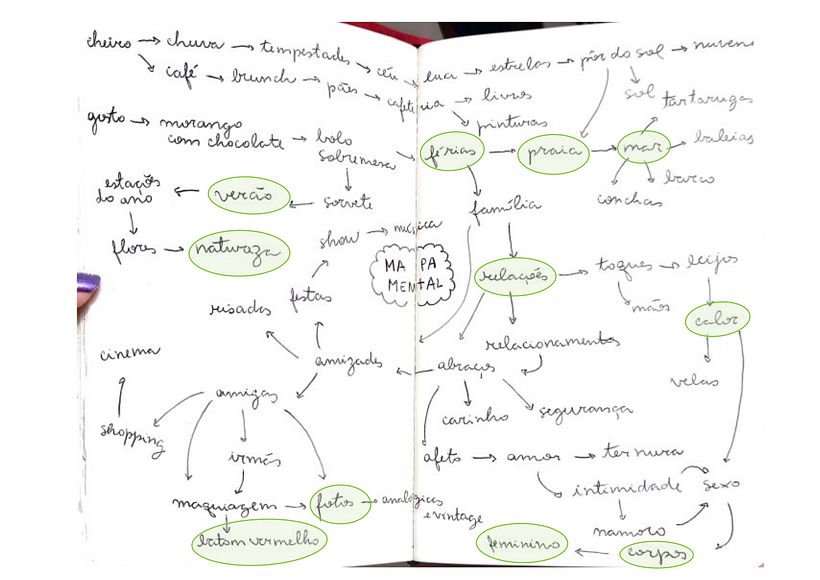 cheiro → chuva → tempestades → céu → lua → estrelas → pôr do sol → nuvens
café → brunch → pães → cafeteria → livros
sol
tartarugas
pinturas
gosto → morango
com chocolate → bolo
sobremesa
férias → praia → mar
baleias
barco
conchas
estações
do ano
verão
sorvete
família
flores → natureza
show → música
MAPA
MENTAL
relações → toques → beijos
mãos
calor
risadas
festas
relacionamentos
velas
cinema
amizades
abraços
amigas
carinho
segurança
shopping
irmãs
afeto → amor → ternura
intimidade
sexo
maquiagem → fotos → analógicas
e vintage
namoro
batom vermelho
feminino
corpos